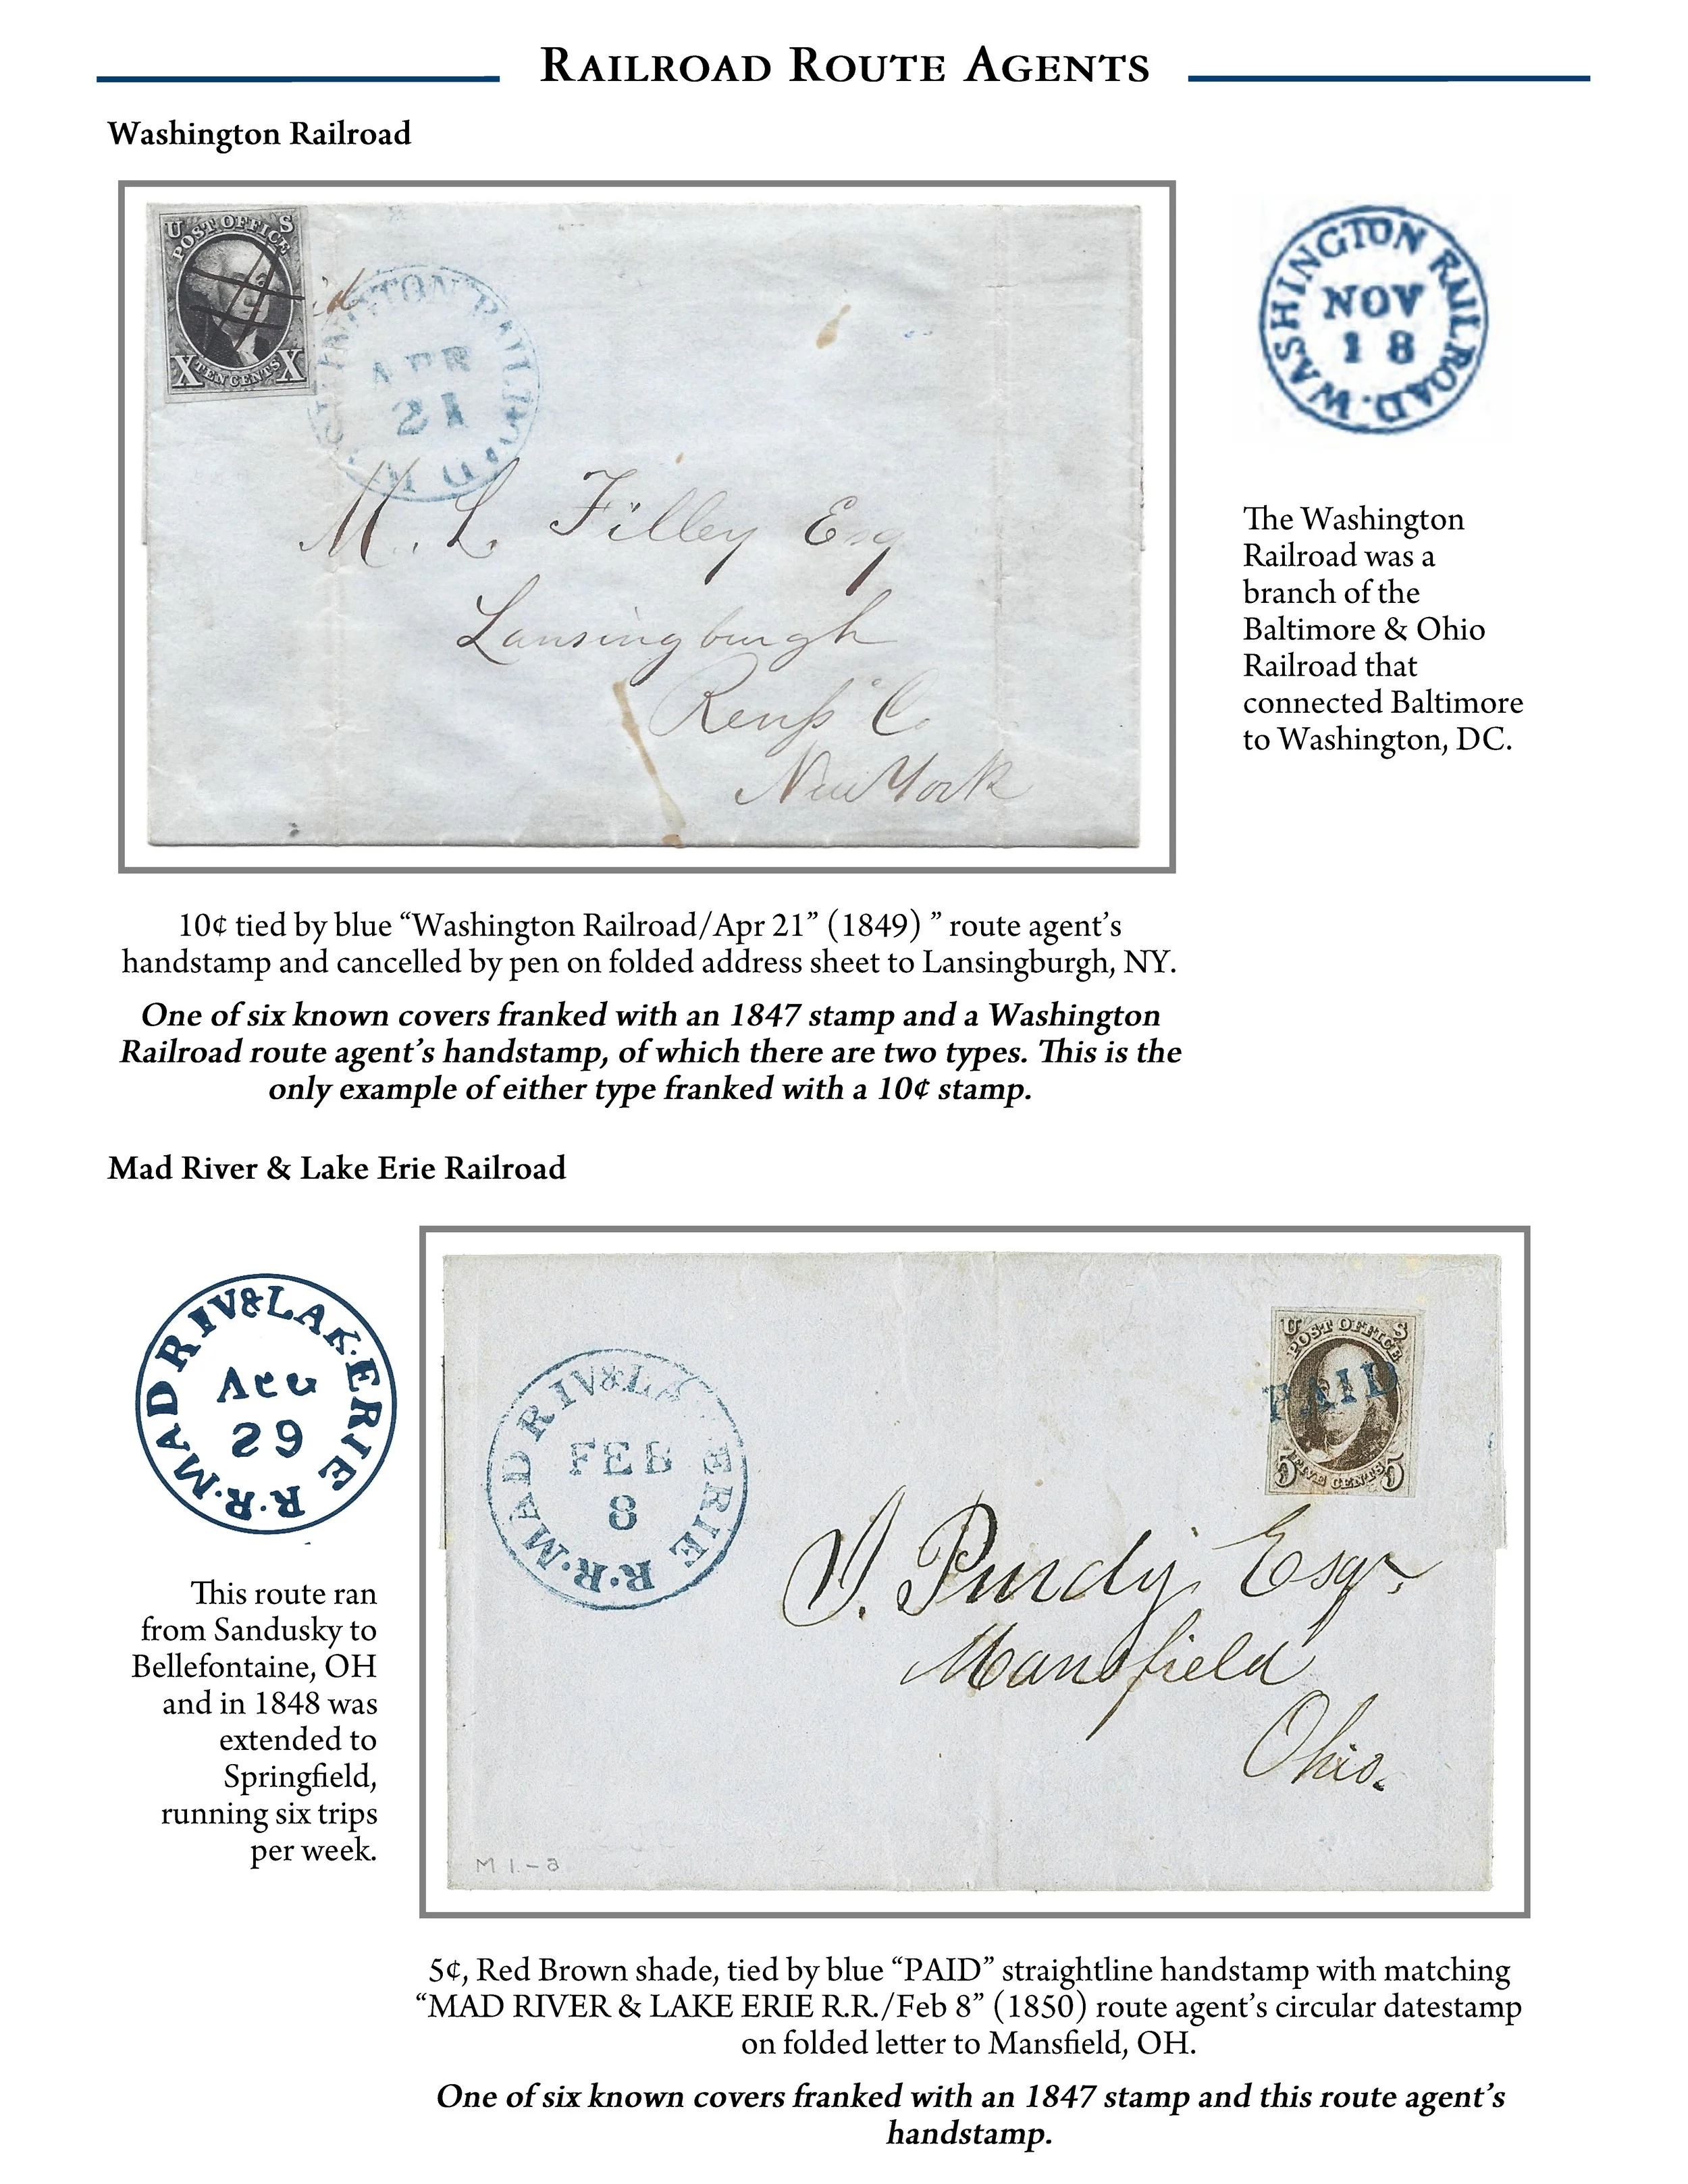 RAILROAD ROUTE AGENTS
Washington Railroad
U S
POST OFFICE
X TEN CENTS X
APR
21
M. L. Filley Esq
Lansingburgh
Renss Co
New York
WASHINGTON RAILROAD.
NOV
18
The Washington
Railroad was a
branch of the
Baltimore & Ohio
Railroad that
connected Baltimore
to Washington, DC.
10¢ tied by blue “Washington Railroad/Apr 21” (1849) ” route agent’s
handstamp and cancelled by pen on folded address sheet to Lansingburgh, NY.
One of six known covers franked with an 1847 stamp and a Washington
Railroad route agent’s handstamp, of which there are two types. This is the
only example of either type franked with a 10¢ stamp.
Mad River & Lake Erie Railroad
MAD RIV & LAK. ERIE R.R.
AUG
29
This route ran
from Sandusky to
Bellefontaine, OH
and in 1848 was
extended to
Springfield,
running six trips
per week.
MAD RIV & LA ERIE R.R.
FEB
8
U S
POST OFFICE
PAID
5 FIVE CENTS 5
Purdy Esqr.
Mansfield
Ohio.
M 1-a
5¢, Red Brown shade, tied by blue “PAID” straightline handstamp with matching
“MAD RIVER & LAKE ERIE R.R./Feb 8” (1850) route agent’s circular datestamp
on folded letter to Mansfield, OH.
One of six known covers franked with an 1847 stamp and this route agent’s
handstamp.